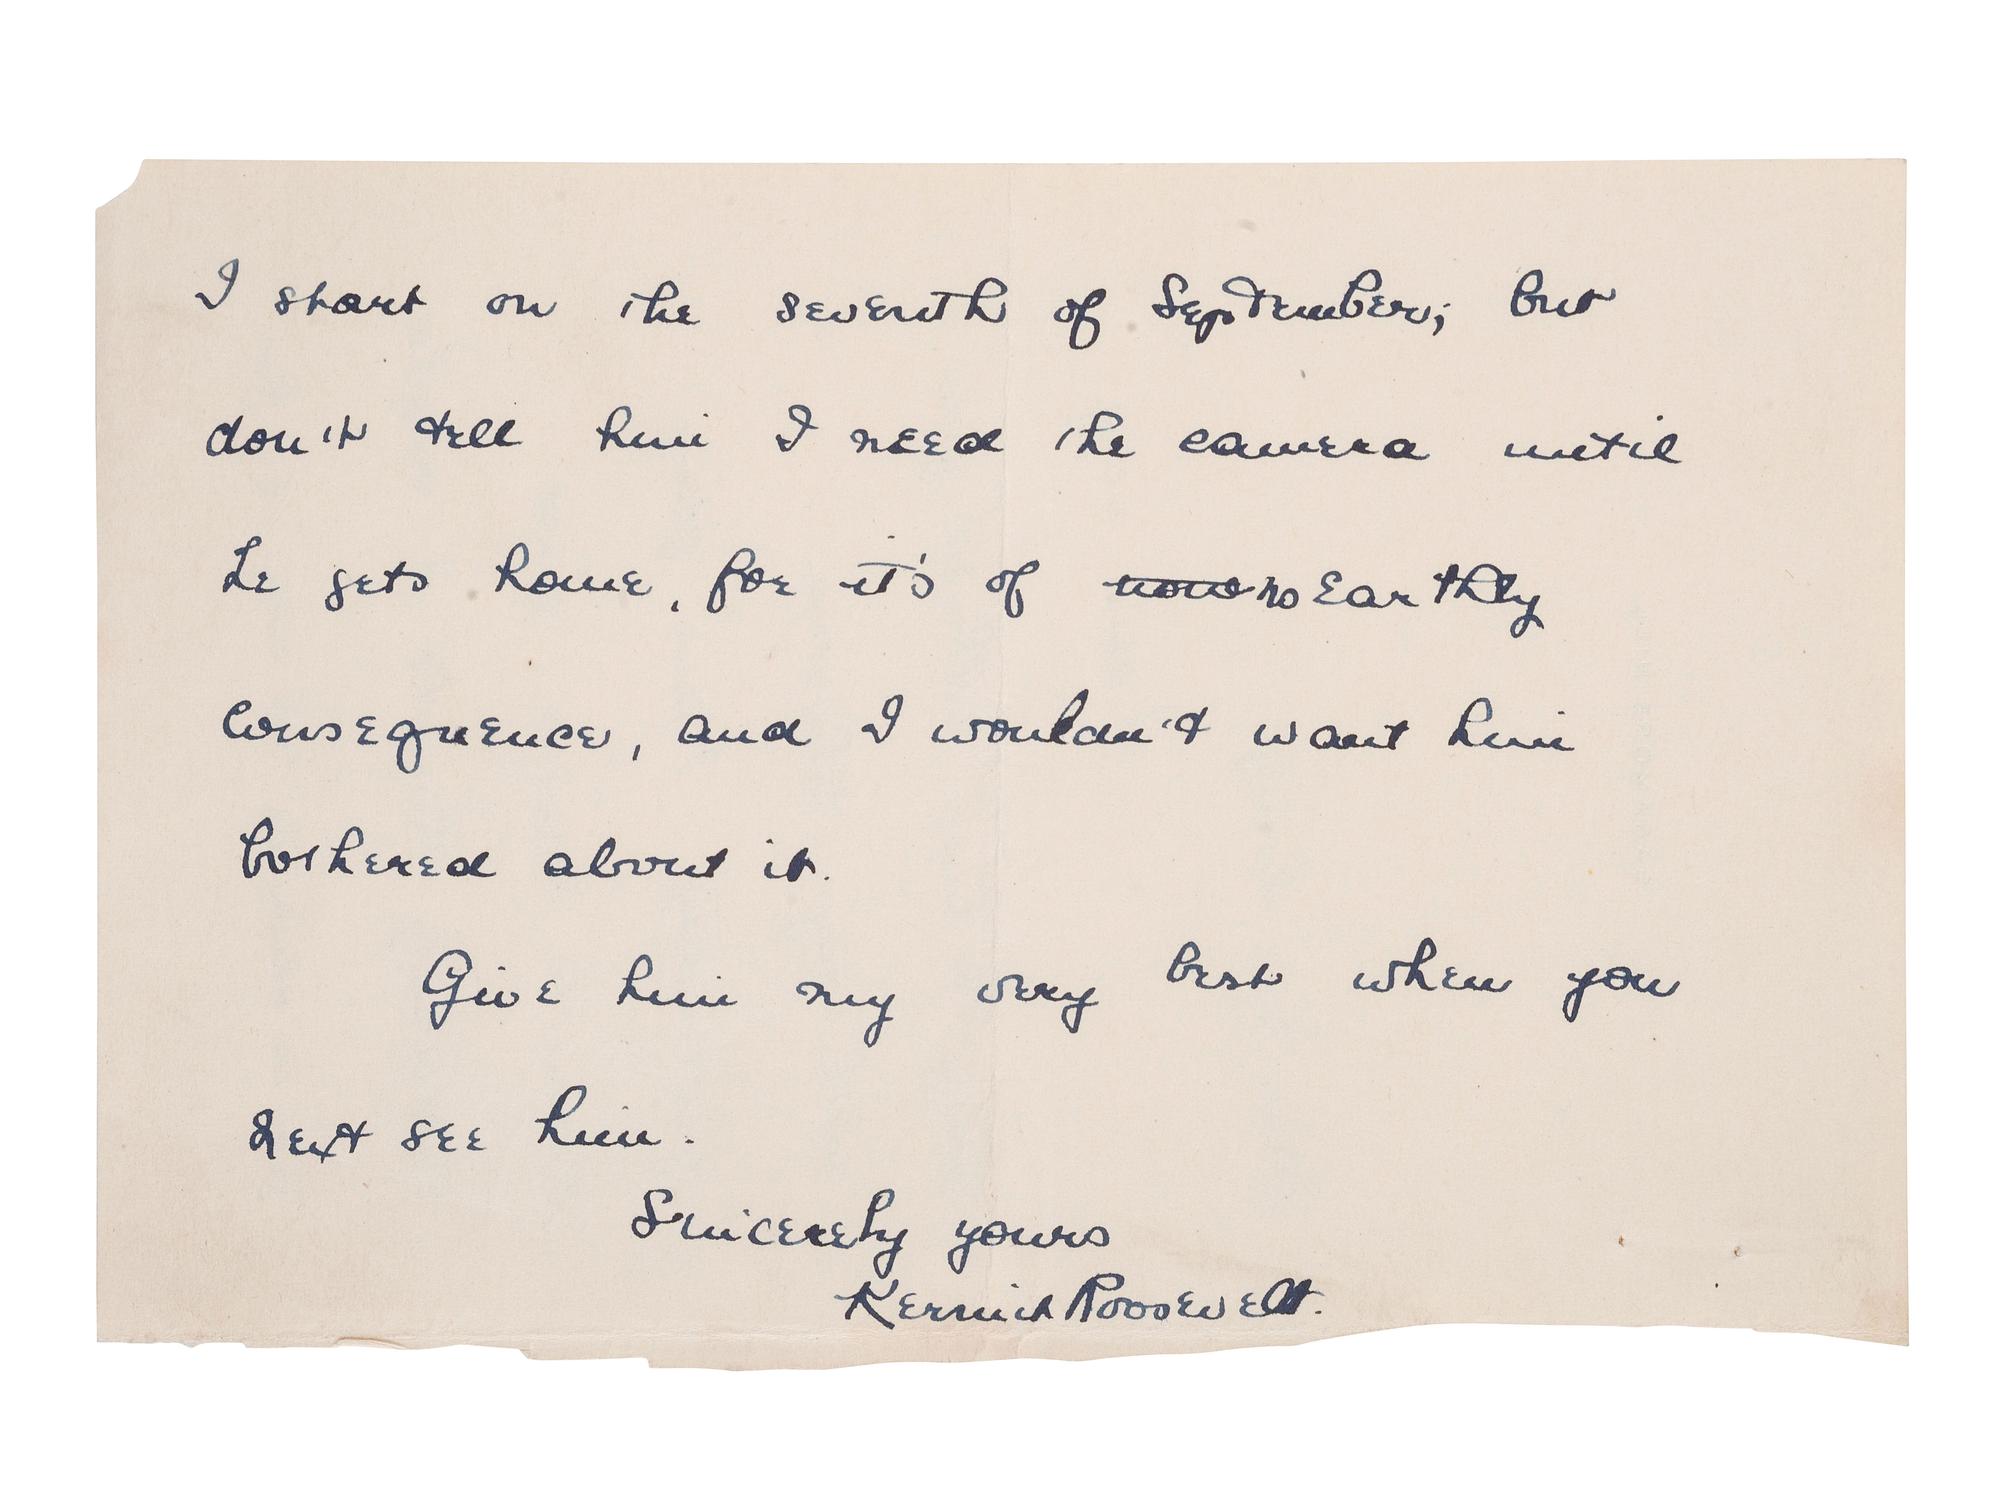 I start on the seventh of September; but
don't tell him I need the camera until
he gets home, for it's of no earthly
consequence, and I wouldn't want him
bothered about it.
Give him my very best when you
next see him.
Sincerely yours
Kermit Roosevelt.